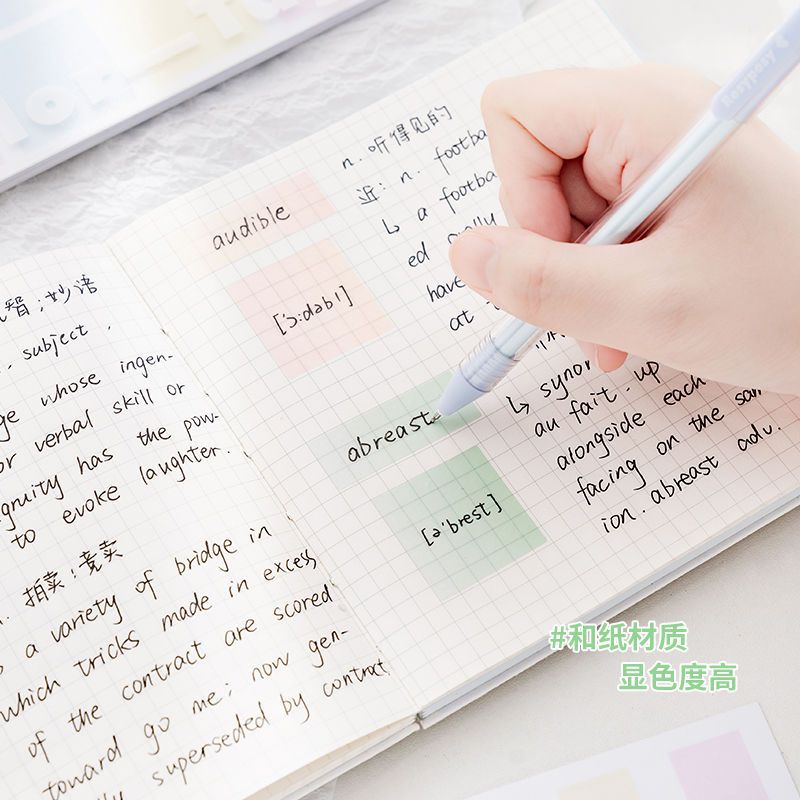 智;妙语
subject.
whose ingen-
or verbal skill or
gruity has the pow-
to evoke laughter.
拍卖;竞卖
a variety of bridge in
which tricks made in excess
of the contract are scored
toward go me; now gen-
superseded by contract
audible
['ɔ:dəbl]
n.听得见的
近: n. footba
↳ a footba
ed
have
at
abreast
[ə'brest]
↳ synon
au fait. up
alongside each
facing on the sam
ion. abreast adv.
easypasy
#和纸材质
显色度高